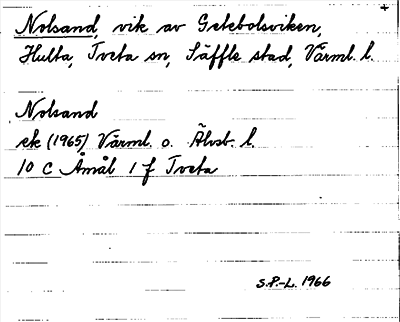 Nolsand, vik av Getebolsviken,
Hulta, Tveta sn, Säffle stad, Värml. l.
Nolsand
ek (1965) Värml. o. Älvsb. l.
10 C Åmål 1 f Tveta
S.P.-L. 1966